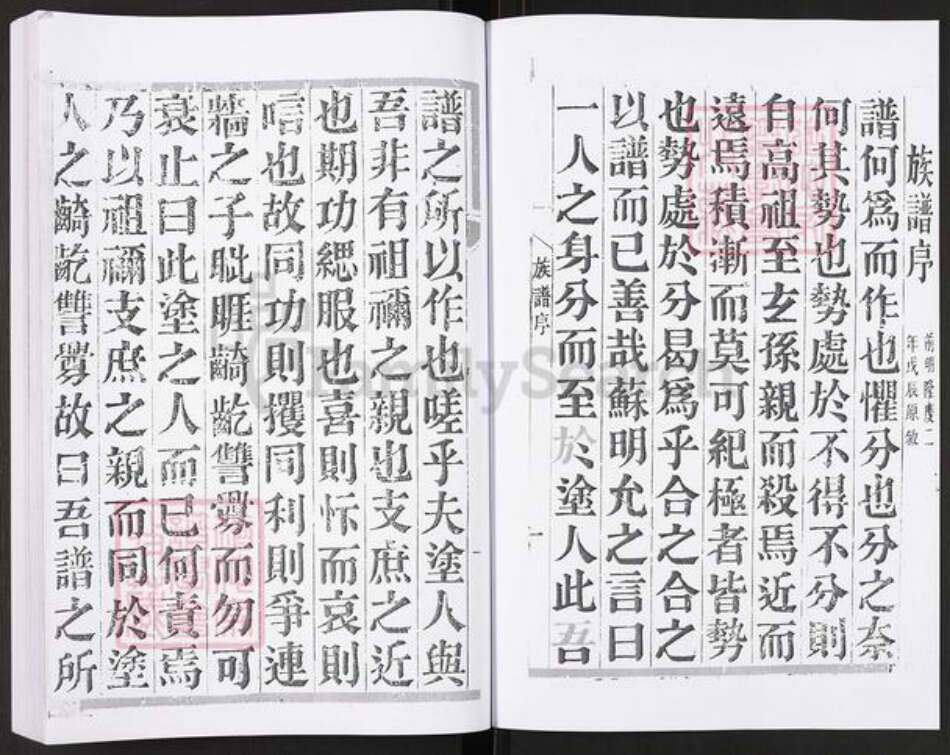 族譜序
前明隆慶二
年戊辰原敘
譜何爲而作也懼分也分之奈
何其勢也勢處於不得不分則
自高祖至玄孫親而殺焉近而
遠焉積漸而莫可紀極者皆勢
也勢處於分曷爲乎合之合之
以譜而已善哉蘇明允之言曰
一人之身分而至於塗人此吾
族譜序
一
譜之所以作也嗟乎夫塗人與
吾非有祖禰之親也支庶之近
也期功緦服也喜則忻而哀則
唁也故同功則攫同利則爭連
牆之子眦睚齮齕讐釁而勿可
衰止曰此塗之人而已何責焉
乃以祖禰支庶之親而同於塗
人之齮齕讐釁故曰吾譜之所
FamilySearch